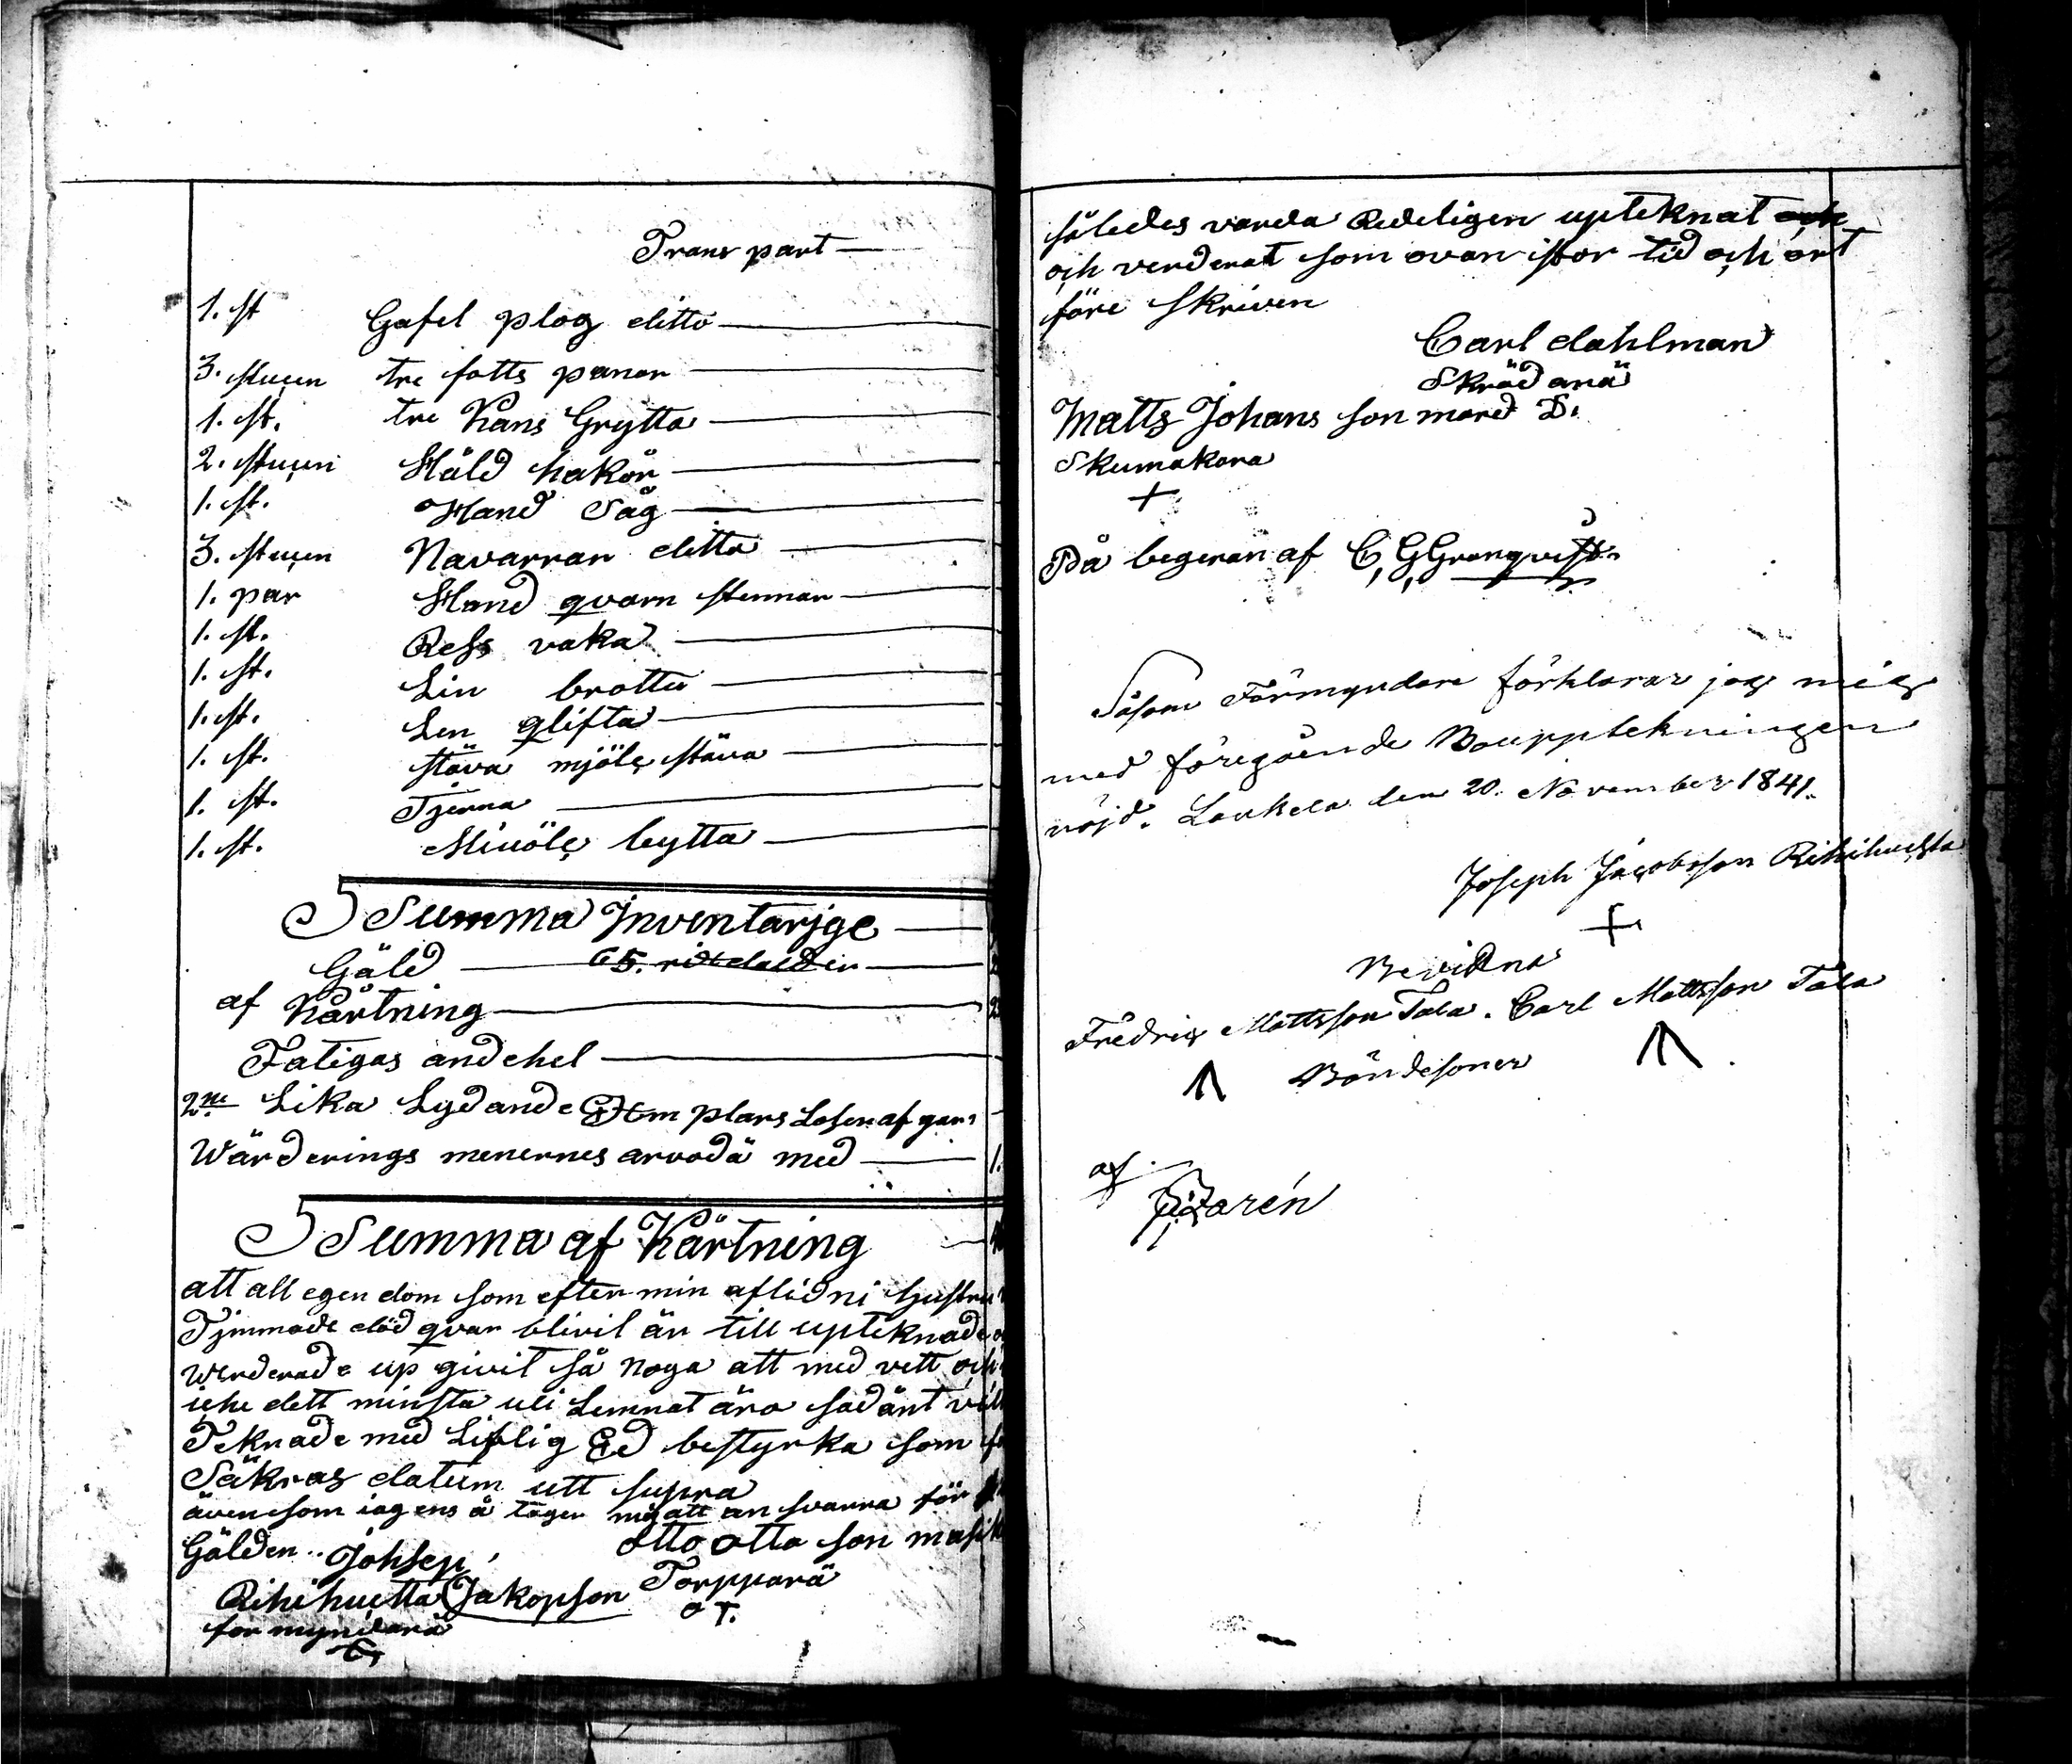 Transpart
1. st Gafel plog ditto
3. stucen tre fotts panor
1. st. tre Kans Grytta
2. stucen Häld hakor
1. st. Hand Såg
3. stucen Navarran ditto
1. par Hand qvarn stennar
1. st. Refs vaka
1. st. Lin brotta
1. st. Len glifta
1. st. stäva mjölc stäva
1. st. Tjerna
1. st. bytta
Summa Inventarjge
Gäld 65.
af Kårtning
Fatigas andehel
2ne Lika Lydande Läsen af
Wärderings menernes arvodä med 1.
Summa af Kårtning
att all egendom som efter min aflidni hustru
Tjmmade död qvar blivit är till upteknade
Werderade up givit så noga att med vett och
icke dett minsta uti Lemnat ära sadänt
Teknade med Liflig Ed bestyrka som
Säkras datum utt supra
även som iag ens å tager mig att an svarra för
Gälden. Johsep otto otto son
Rihihuetta Jakopson Torpparä
for myndarä o T.
således varda Redeligen upteknat och
och verderat som ovan istor tid och ort
före skriven
Carl dahlman
Skrädarä
Matts Johans son mard
Skumakara
+
På begeran af C, G, Granqvist
Såsom Förmyndare förklarar jag mig
med föregående Bouppteckningen
nöjd. Loukela den 20. November 1841.
Joseph Jacobsson Rihihuchta
+
Bevidna
Fredric Mattsson Tala. Carl Mattsson Tala
Böndesoner
af